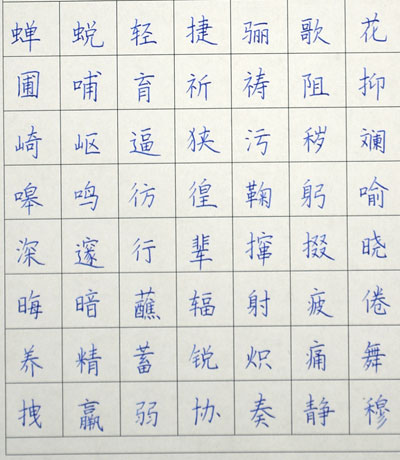 蝉蜕轻捷骊歌花
圃哺育祈祷阻抑
崎岖逼狭污秽斓
嗥鸣彷徨鞠躬喻
深邃行辈撺掇晓
晦暗蘸辐射疲倦
养精蓄锐炽痛舞
拽羸弱协奏静穆